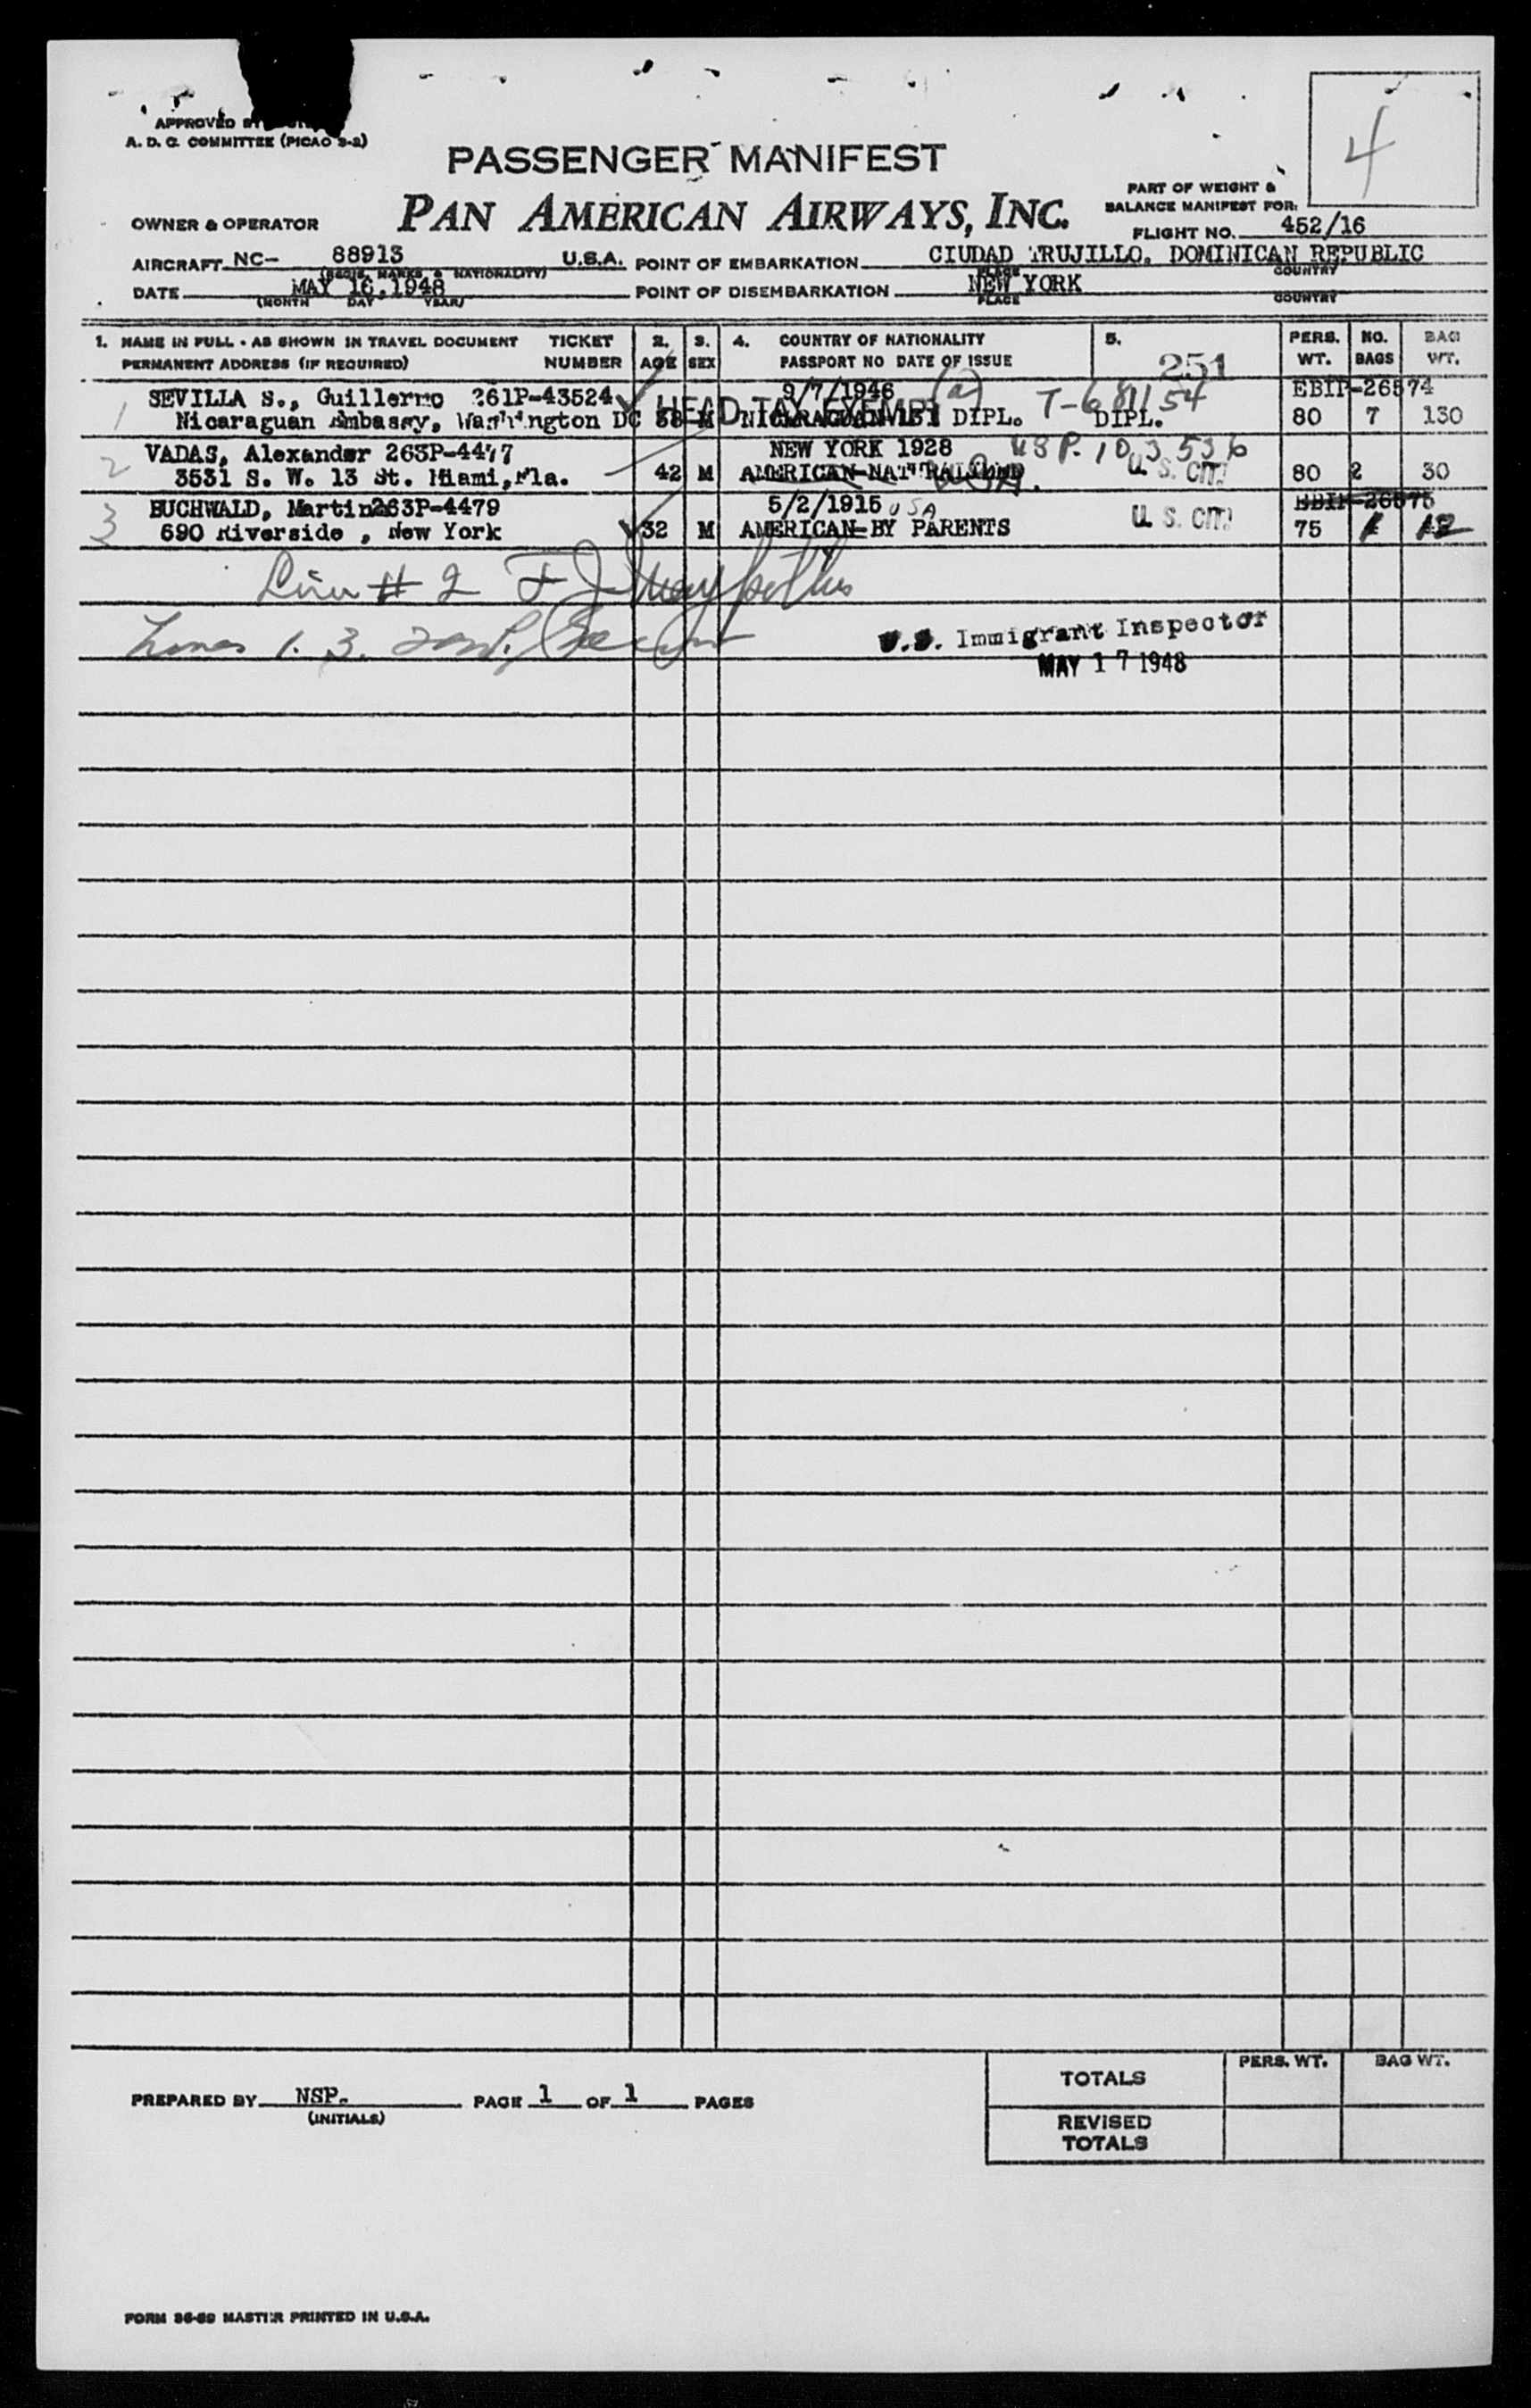 4
APPROVED BY
A. D. C. COMMITTEE (PICAO 9-2)
PASSENGER MANIFEST
PAN AMERICAN AIRWAYS, INC.
PART OF WEIGHT &
BALANCE MANIFEST FOR:
OWNER & OPERATOR
FLIGHT NO. 452/16
AIRCRAFT NC- 88913 U.S.A. POINT OF EMBARKATION CIUDAD TRUJILLO. DOMINICAN REPUBLIC
(REGIS. MARKS & NATIONALITY) PLACE COUNTRY
DATE MAY 16,1948 POINT OF DISEMBARKATION NEW YORK
(MONTH DAY YEAR) PLACE COUNTRY
1. NAME IN FULL - AS SHOWN IN TRAVEL DOCUMENT TICKET 2. 3. 4. COUNTRY OF NATIONALITY 5. PERS. NO. BAG
PERMANENT ADDRESS (IF REQUIRED) NUMBER AGE SEX PASSPORT NO DATE OF ISSUE 251 WT. BAGS WT.
SEVILLA S., Guillermo 261P-43524 9/7/1946 (a) T-681154 EBIP-26574
HEAD TAX EXEMPT
1 Nicaraguan Embassy, Washington DC M NICARAGUAN DIPL. DIPL. 80 7 130
VADAS, Alexander 263P-4477 NEW YORK 1928 USP. 103536
2 3531 S. W. 13 St. Miami,Fla. 42 M AMERICAN-NATURALIZED USA. U. S. CIT. 80 2 30
BUCHWALD, Martin263P-4479 5/2/1915 USA EBIP-26575
3 690 Riverside , New York 32 M AMERICAN-BY PARENTS U. S. CIT. 75 1 12
Line # 2 F J
Lines 1. 3. U.S. Immigrant Inspector
MAY 17 1948
PERS. WT. BAG WT.
TOTALS
PREPARED BY NSP. PAGE 1 OF 1 PAGES
(INITIALS)
REVISED
TOTALS
FORM 36-69 MASTER PRINTED IN U.S.A.